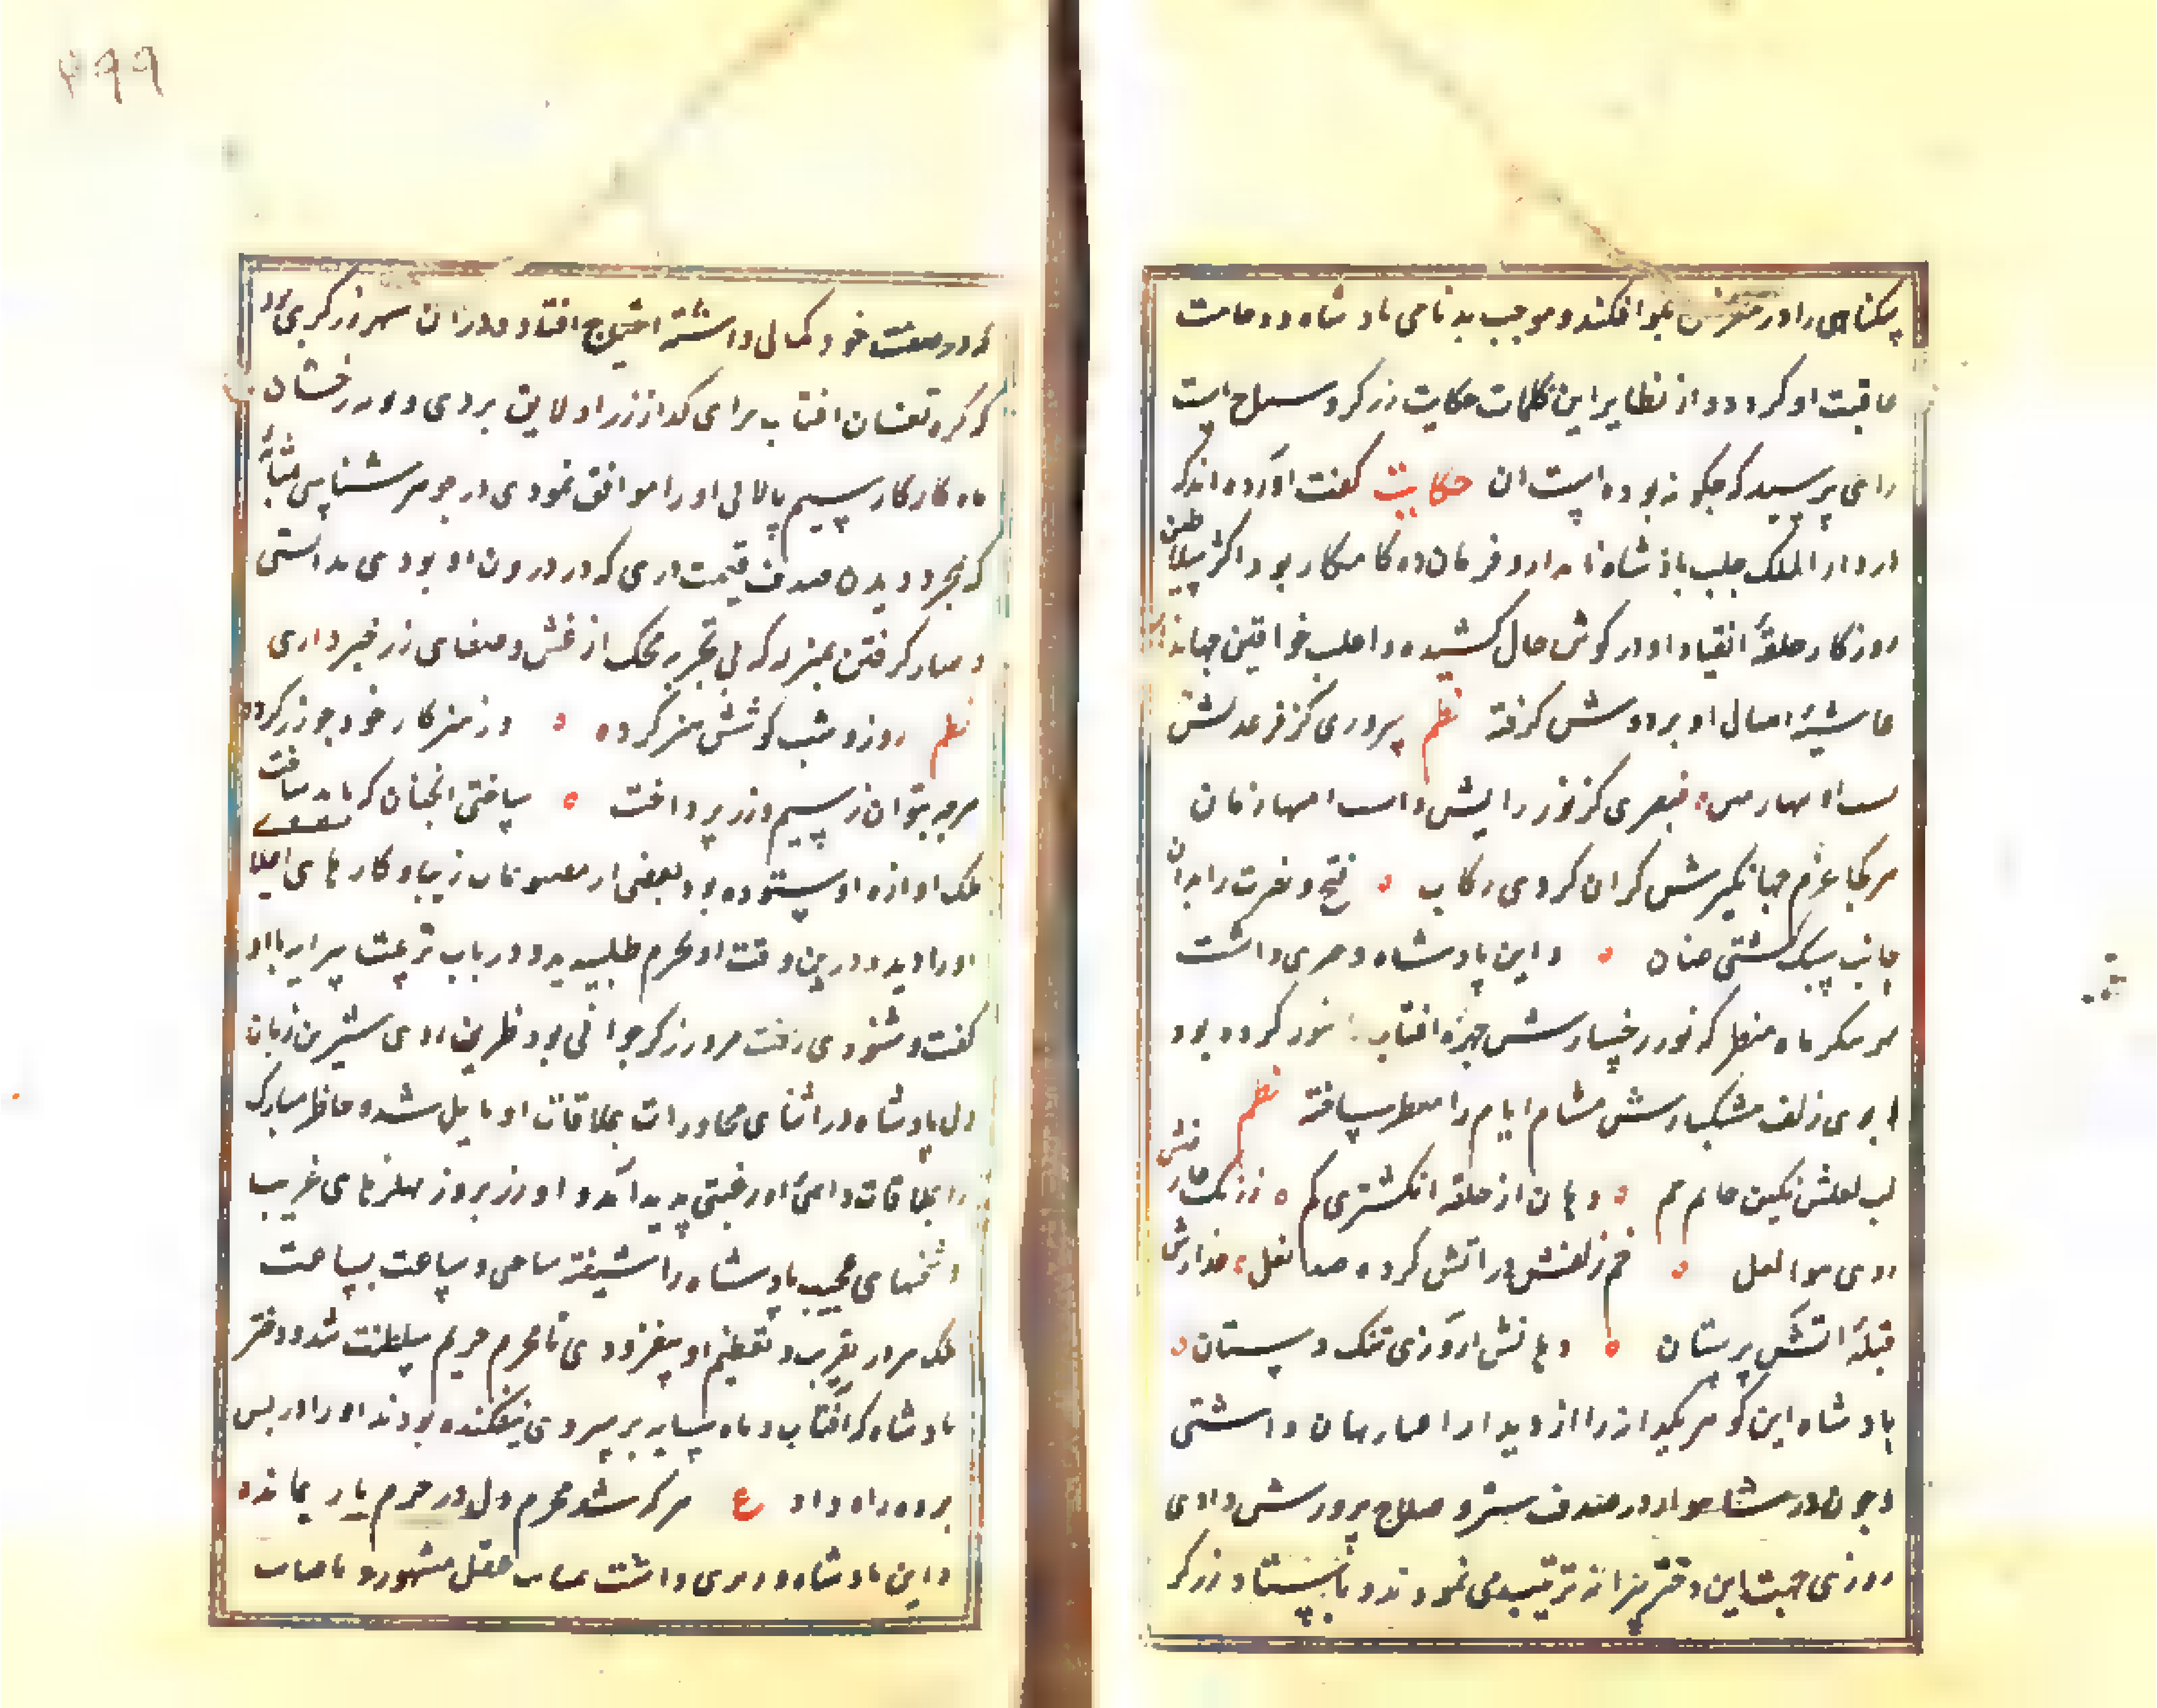 بیکناهی را در معرض بلوا افکند و موجب بد نامی بادشاه و وخامت
عاقبت او کردد و از نظایر این کلمات حکایت زرکر و سیاح است
رای پرسید که چکونه بوده است ان حکایت کفت آورده اند که
در دار الملک حلب بادشاه نامدار و فرمان ده کامکار بود اکثر سلاطین
روزکار حلقهٔ انقیاد او در کوش حال کشیده و اغلب خواقین جهاندار
غاشیهٔ او بر دوش کرفته نظم سروری کز فر عدلش
قیصری کز نور رایش زمان
هر کجا عزم جهانکیرش کران کردی رکاب فتح و نصرت را بدان
جانب سبک کشتی عنان و این پادشاه دختری داشت
ماه منظر که نور رخسارش چهرهٔ افتاب را منور کرده بود
و بوی زلف مشکبارش مشام ایام را معطر ساخته نظم
لب لعلش نکین خاتم جم دهان از حلقه انکشتری کم
روی هوا لعل خم زلفش در اتش کرده صد نعل عذارش
قبلهٔ اتش پرستان دهانش آرزوی تنک دستان
بادشاه این کوهر یکدانه را از دیدار اغیار نهان داشتی
و چون در شاهوار در صدف ستر و صلاح پرورش دادی
روزی جهت این دختر پیرانه ترتیب می نمودند و باستاد زرکر
که در صنعت خود کمالی داشته احتیاج افتاد و دران شهر زرکری بود
که کره تفسان افتاب برای کداز زر او لایق بودی و ورد رخشان
ماه کار کار سیم پالای او را موافق نمودی در جوهر شناسی بمثابهٔ
که بمجرد دیدن صدف قیمت دری که در درون او بودی بدانستی
و عیار کرفتن بمنزلهٔ که بی تجربه محک از غش و صفای زر خبر داری
نظم روز و شب کوشش هنر کرده در هنر کار خود چو زر کرده
هرچه بتوان ز سیم و زر پرداخت ساختی انچنان که باید ساخت
ملک اوازه او ستوده بود و بعضی از مصنوعات زیبا و کارهای
او را دیده درین وقت او را بحرم طلبید و در باب ترتیب پیرایه با او
کفت و شنودی رفت مرد زرکر جوانی بود ظریف روی شیرین زبان
دل پادشاه در اثنای محاورات بملاقات او مایل شد و خاطر مبارک
را بملاقات دایمی او رغبتی پدید آمد و او روز بروز هنرهای غریب
و سخنهای عجیب پادشاه را شیفته ساختی و ساعت بساعت
ملک در تقرب و تعظیم او می افزودی تا محرم حریم سلطنت شد و دختر
بادشاه که آفتاب و ماه سایه بر سر وی نیفکنده بودند او را در پس
پرده راه داد ع هر که شد محرم دل در حرم یار بماند
و این بادشاه وزیری داشت بعقل مشهور و
۴۹۹